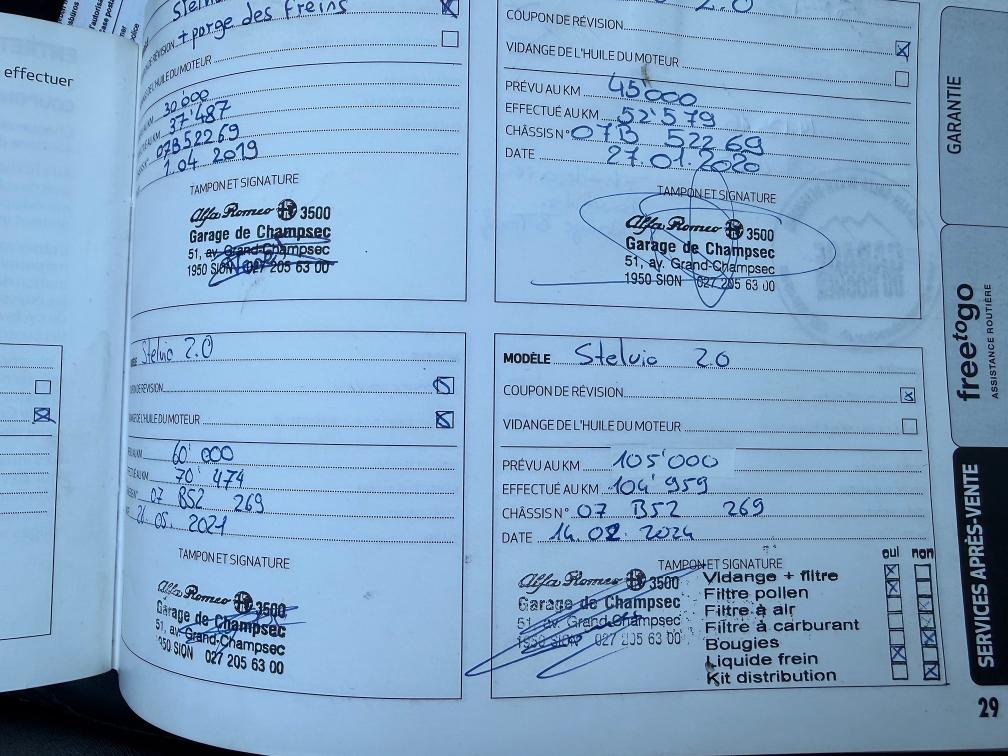 effectuer
Stelvio
+ purge des freins
DE RÉVISION
DE L'HUILE DU MOTEUR
AU KM 30'000
37'487
07B52269
1.04 2019
TAMPON ET SIGNATURE
Alfa Romeo 3500
Garage de Champsec
51, av. Grand-Champsec
1950 SION 027 205 63 00
2.0
COUPON DE RÉVISION
VIDANGE DE L'HUILE DU MOTEUR
PRÉVU AU KM 45'000
EFFECTUÉ AU KM 52'579
CHÂSSIS N° 07B 52269
DATE 27.01.2020
TAMPON ET SIGNATURE
Alfa Romeo 3500
Garage de Champsec
51, av. Grand-Champsec
1950 SION 027 205 63 00
Stelvio 2.0
DE RÉVISION
DE L'HUILE DU MOTEUR
AU KM 60'000
AU KM 70'474
07 B52 269
05. 2021
TAMPON ET SIGNATURE
Alfa Romeo 3500
Garage de Champsec
51, av. Grand-Champsec
950 SION 027 205 63 00
MODÈLE Stelvio 20
COUPON DE RÉVISION
VIDANGE DE L'HUILE DU MOTEUR
PRÉVU AU KM 105'000
EFFECTUÉ AU KM 104'959
CHÂSSIS N° 07 B52 269
DATE 14.02.2024
TAMPON ET SIGNATURE
Alfa Romeo 3500
Garage de Champsec
51, av. Grand-Champsec
1950 SION 027 205 63 00
oui non
Vidange + filtre
Filtre pollen
Filtre à air
Filtre à carburant
Bougies
Liquide frein
Kit distribution
GARANTIE
freetogo
ASSISTANCE ROUTIÈRE
SERVICES APRÈS-VENTE
29